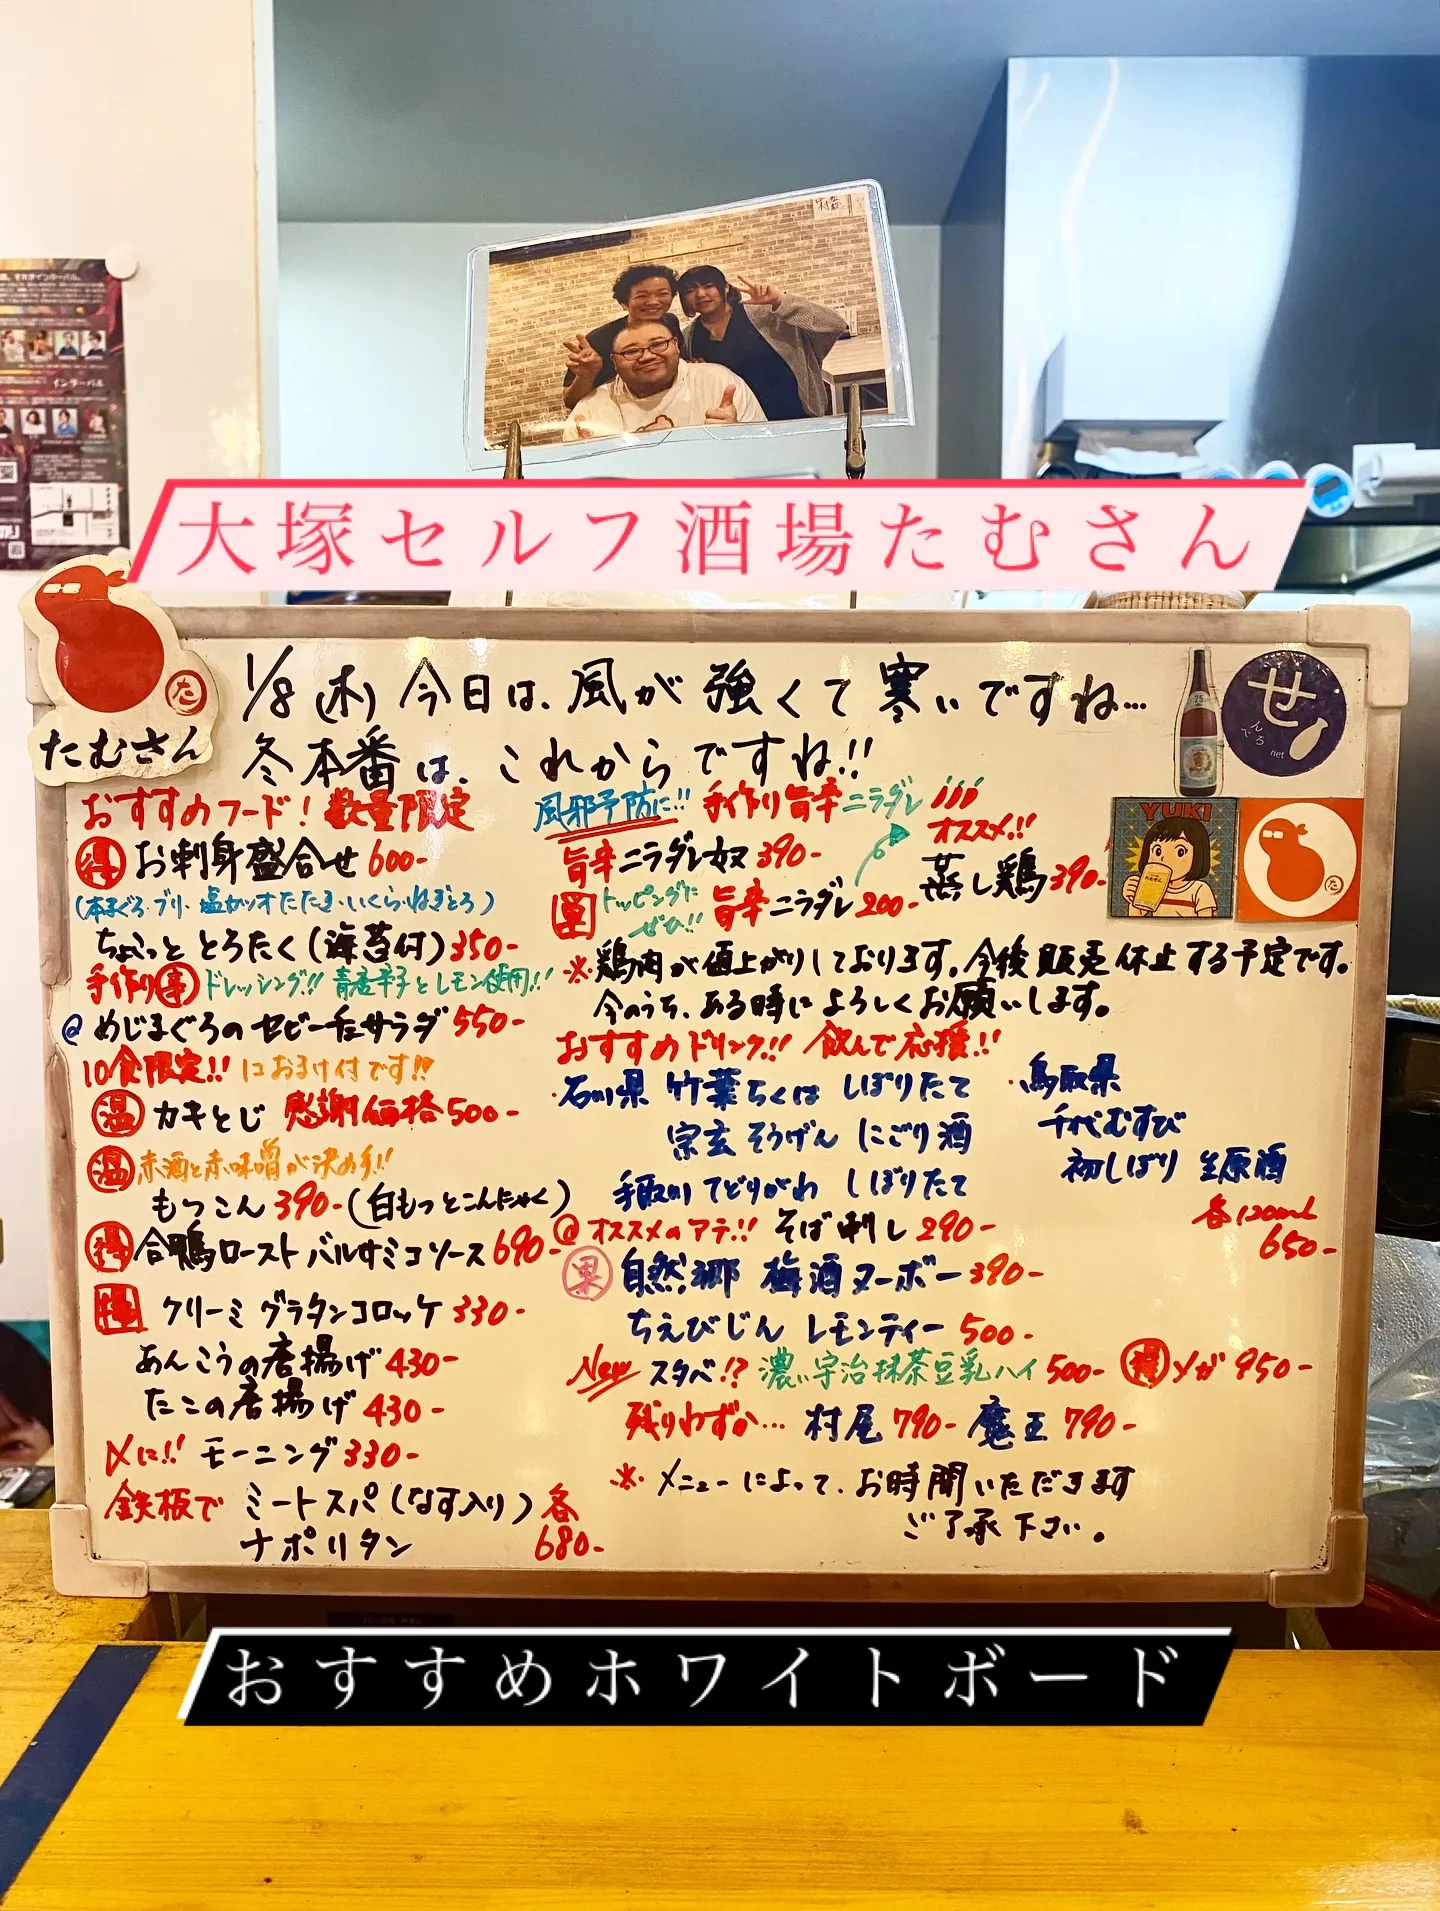 大塚セルフ酒場たむさん
たむさん
た
1/8(木)今日は、風が強くて寒いですね…
冬本番は、これからですね!!
せ
んでろ
net
YUKI
おすすめフード!数量限定
得 お刺身盛合せ 600-
(本まぐろ・ブリ・塩カツオたたき・いくら・ねぎとろ)
ちょこっと とろたく(海苔付)350-
手作り ドレッシング!! 青唐辛子とレモン使用!!
@ めじまぐろのセビーチェサラダ 550-
10食限定!! におまけ付です!!
温 カキとじ 感謝価格 500-
温 赤酒と赤味噌が決め手!!
もつこん 390-(白もつとこんにゃく)
得 合鴨ロースト バルサミコソース 690-
クリーミーグラタンコロッケ 330-
あんこうの唐揚げ 430-
たこの唐揚げ 430-
〆に!! モーニング 330-
鉄板で ミートスパ(なす入り)各
ナポリタン 680-
風邪予防に!! 手作り旨辛ニラダレ
オススメ!!
旨辛ニラダレ奴 390-
蒸し鶏 390-
トッピングに
ぜひ!! 旨辛ニラダレ 200-
※鶏肉が値上がりしております。今後販売休止する予定です。
今のうち、ある時によろしくお願いします。
おすすめドリンク!! 飲んで応援!!
・石川県 竹葉ちくは しぼりたて
宗玄 そうげん にごり酒
手取川 てどりがわ しぼりたて
・鳥取県
千代むすび
初しぼり 生原酒
各120ml
650-
@オススメのアテ!! そば刺し 290-
果 自然郷 梅酒ヌーボー 390-
ちえびじん レモンティー 500-
New スタバ!? 濃い宇治抹茶豆乳ハイ 500- 得 メガ 950-
残りわずか… 村尾 790- 魔王 790-
※メニューによって、お時間いただきます
ご了承下さい。
おすすめホワイトボード